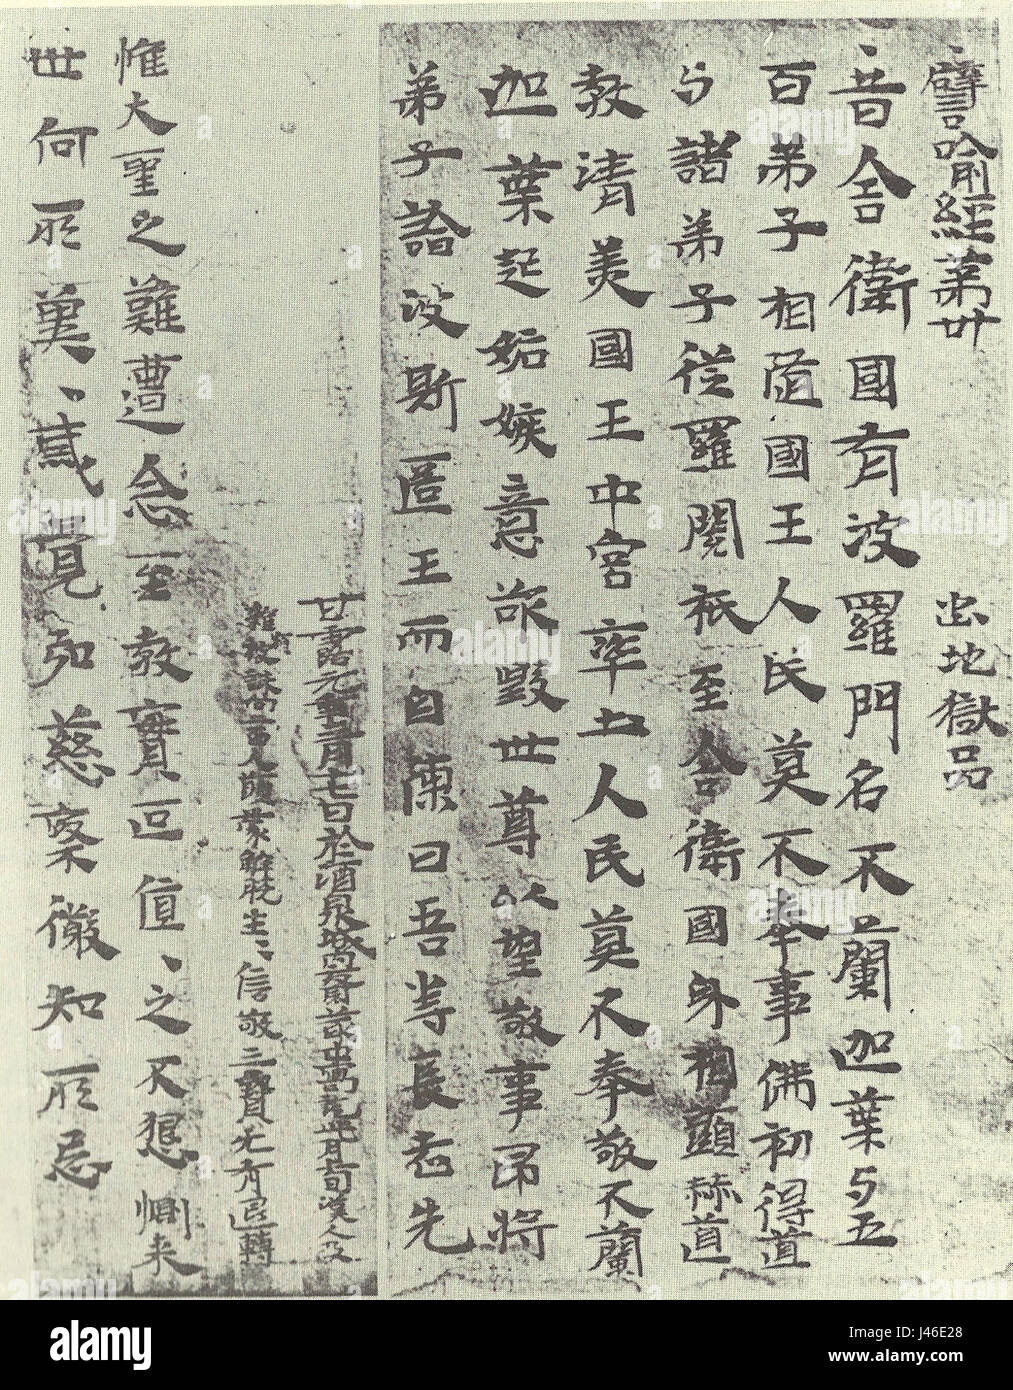 譬喻經第卅 出地獄品
昔舍衛國有波羅門名不蘭迦葉与五
百弟子相隨國王人民莫不奉事佛初得道
与諸弟子從羅閱祇至舍衛國身相顯赫道
教清美國王中宮率土人民莫不奉敬不蘭
迦葉起妬嫉意欲毀世尊以望敬事昂將
弟子詣波斯匿王而自陳曰吾等長老先
甘露元年三月十七日於酒泉城內齋叢中寫訖此月旬漢人及
雜類被誅向二百人願蒙解脫生、信敬三寶无有退轉
惟大聖之難遭念至教寶叵值、之不懇惻来
世何所冀、覺弘慈稟徽知所忌
alamy
Image ID: J46E28
www.alamy.com